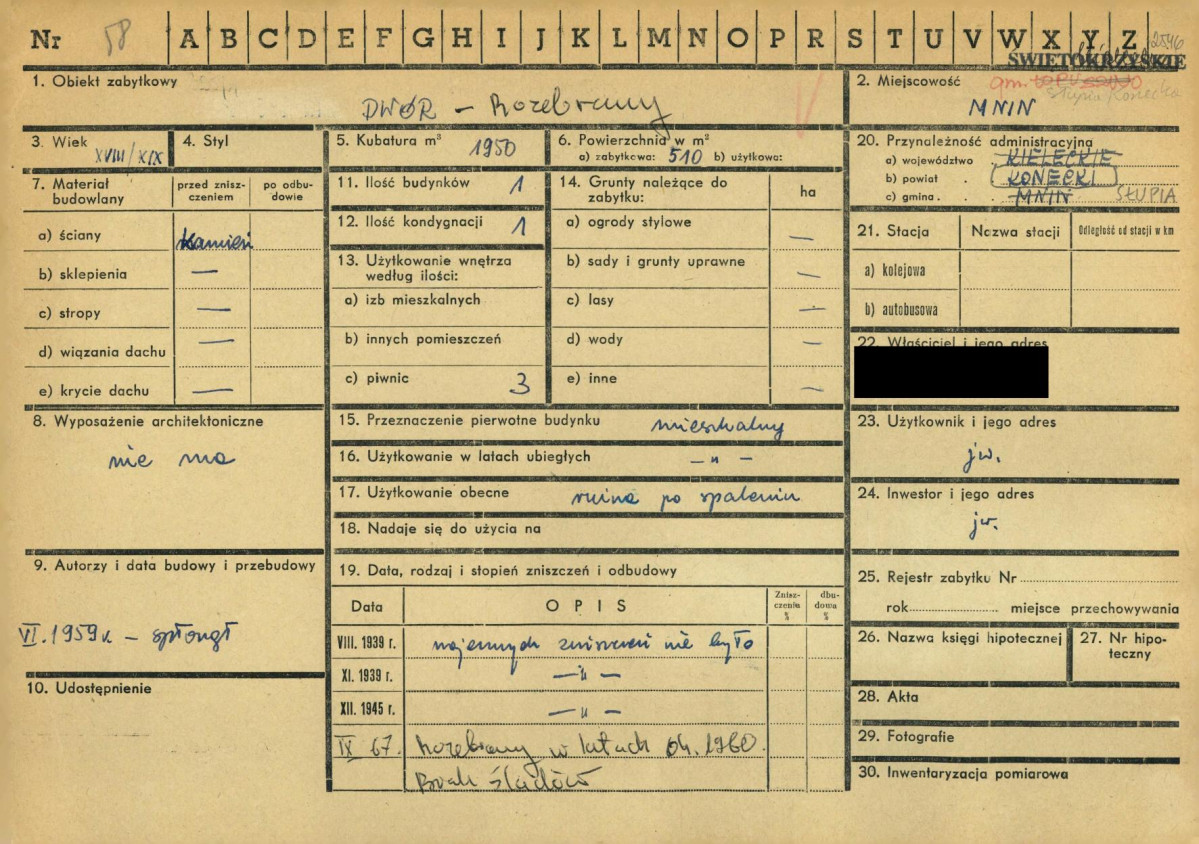 Nr 58 A B C D E F G H I J K L M N O P R S T U V W X Y Z 2546
ŚWIĘTOKRZYSKIE
1. Obiekt zabytkowy
DWÓR – Rozebrany
2. Miejscowość
gm. Słupia /Konecka
MNIN
3. Wiek XVIII/XIX
4. Styl
5. Kubatura m³ 1950
6. Powierzchnia w m²
a) zabytkowa: 510 b) użytkowa:
20. Przynależność administracyjna
a) województwo KIELECKIE
b) powiat KONECKI
c) gmina MNIN SŁUPIA
7. Materiał budowlany
przed zniszczeniem
po odbudowie
a) ściany Kamień
b) sklepienia —
c) stropy —
d) wiązania dachu —
e) krycie dachu —
11. Ilość budynków 1
12. Ilość kondygnacji 1
13. Użytkowanie wnętrza
według ilości:
a) izb mieszkalnych
b) innych pomieszczeń
c) piwnic 3
14. Grunty należące do
zabytku:
ha
a) ogrody stylowe —
b) sady i grunty uprawne —
c) lasy —
d) wody —
e) inne —
21. Stacja
Nazwa stacji
Odległość od stacji w km
a) kolejowa
b) autobusowa
22. Właściciel i jego adres
8. Wyposażenie architektoniczne
nie ma
15. Przeznaczenie pierwotne budynku mieszkalny
16. Użytkowanie w latach ubiegłych – „ –
17. Użytkowanie obecne ruina po spaleniu
18. Nadaje się do użycia na
23. Użytkownik i jego adres
jw.
24. Inwestor i jego adres
jw.
9. Autorzy i data budowy i przebudowy
VI.1959 r – spłonął
10. Udostępnienie
19. Data, rodzaj i stopień zniszczeń i odbudowy
Data
OPIS
Zniszczeniu %
dbudowa %
VIII. 1939 r. wojennych zniszczeń nie było
XI. 1939 r. – „ –
XII. 1945 r. – „ –
IX 67. Rozebrany w latach ok. 1960.
Brak śladów
25. Rejestr zabytku Nr
rok miejsce przechowywania
26. Nazwa księgi hipotecznej
27. Nr hipoteczny
28. Akta
29. Fotografie
30. Inwentaryzacja pomiarowa